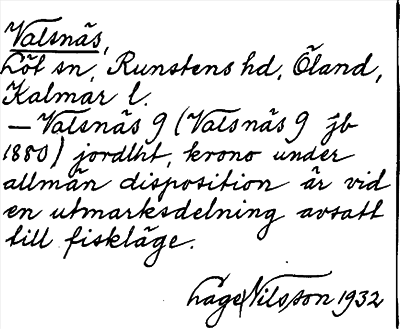 Valsnäs,
Löt sn, Runstens hd, Öland,
Kalmar l.
— Valsnäs 9 (Valsnäs 9 jb
1880) jordlht, krono under
allmän disposition är vid
en utmarksdelning avsatt
till fiskläge.
Låge Nilsson 1932